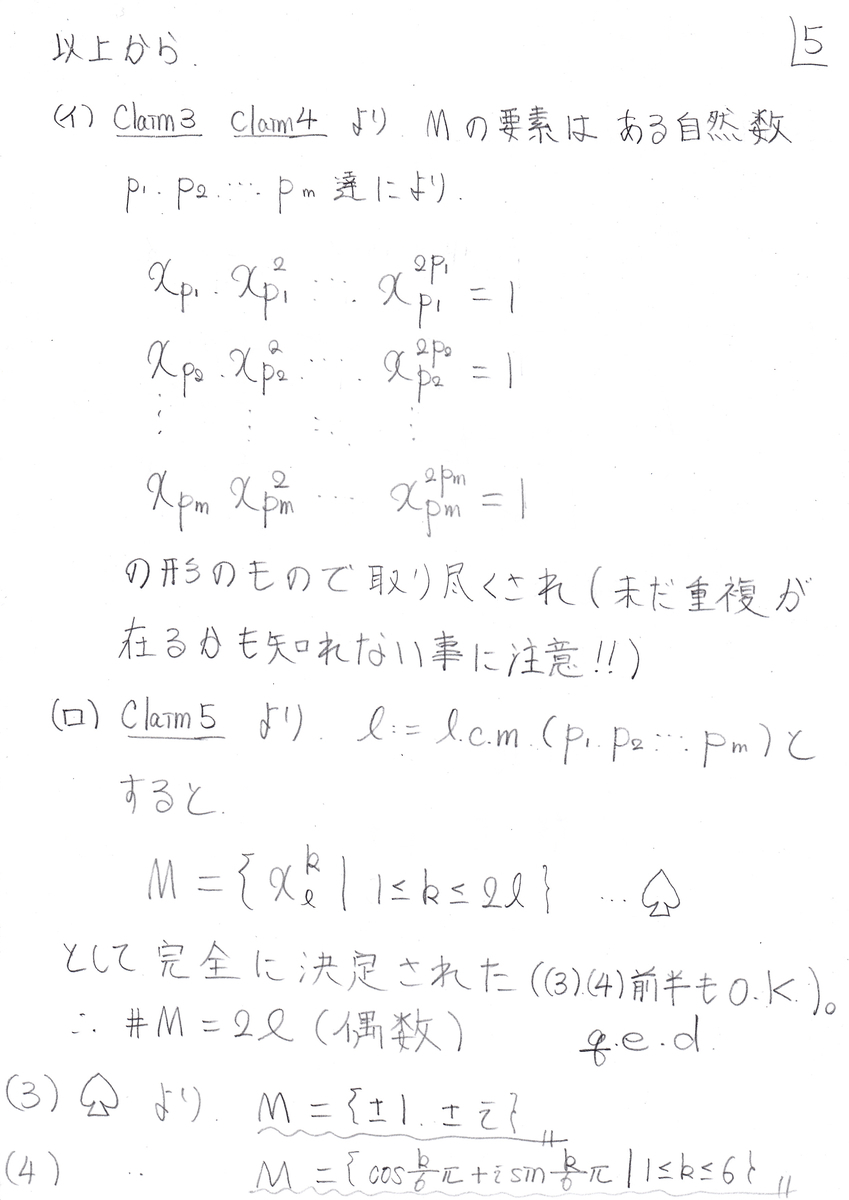 5
以上から.
(イ) Claim3 Claim4 より. Mの要素は ある自然数
p₁. p₂. ⋯. pₘ 達により.
x_{p₁}. x_{p₁}^{2} ⋯. x_{p₁}^{2p₁} = 1
x_{p₂}. x_{p₂}^{2} ⋯. x_{p₂}^{2p₂} = 1
⋮ ⋮ ⋱ ⋮
x_{pₘ} x_{pₘ}^{2} ⋯ x_{pₘ}^{2pₘ} = 1
の形のもので取り尽くされ(未だ重複が
在るかも知れない事に注意!!)
(ロ) Claim5 より. l := l.c.m.(p₁. p₂. ⋯. pₘ)と
すると.
M = { x_{l}^{k} | 1≤k≤2l } … ♤
として完全に決定された((3).(4)前半もO.K.)。
∴ #M = 2l (偶数) q.e.d.
(3) ♤ より. M = {±1. ±i}〃
(4) 〃 M = { cos k/6 π + i sin k/6 π | 1≤k≤6 }〃